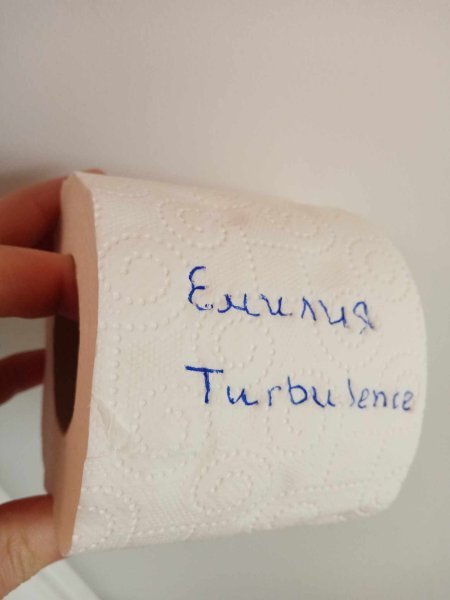 Емилия
Turbulence